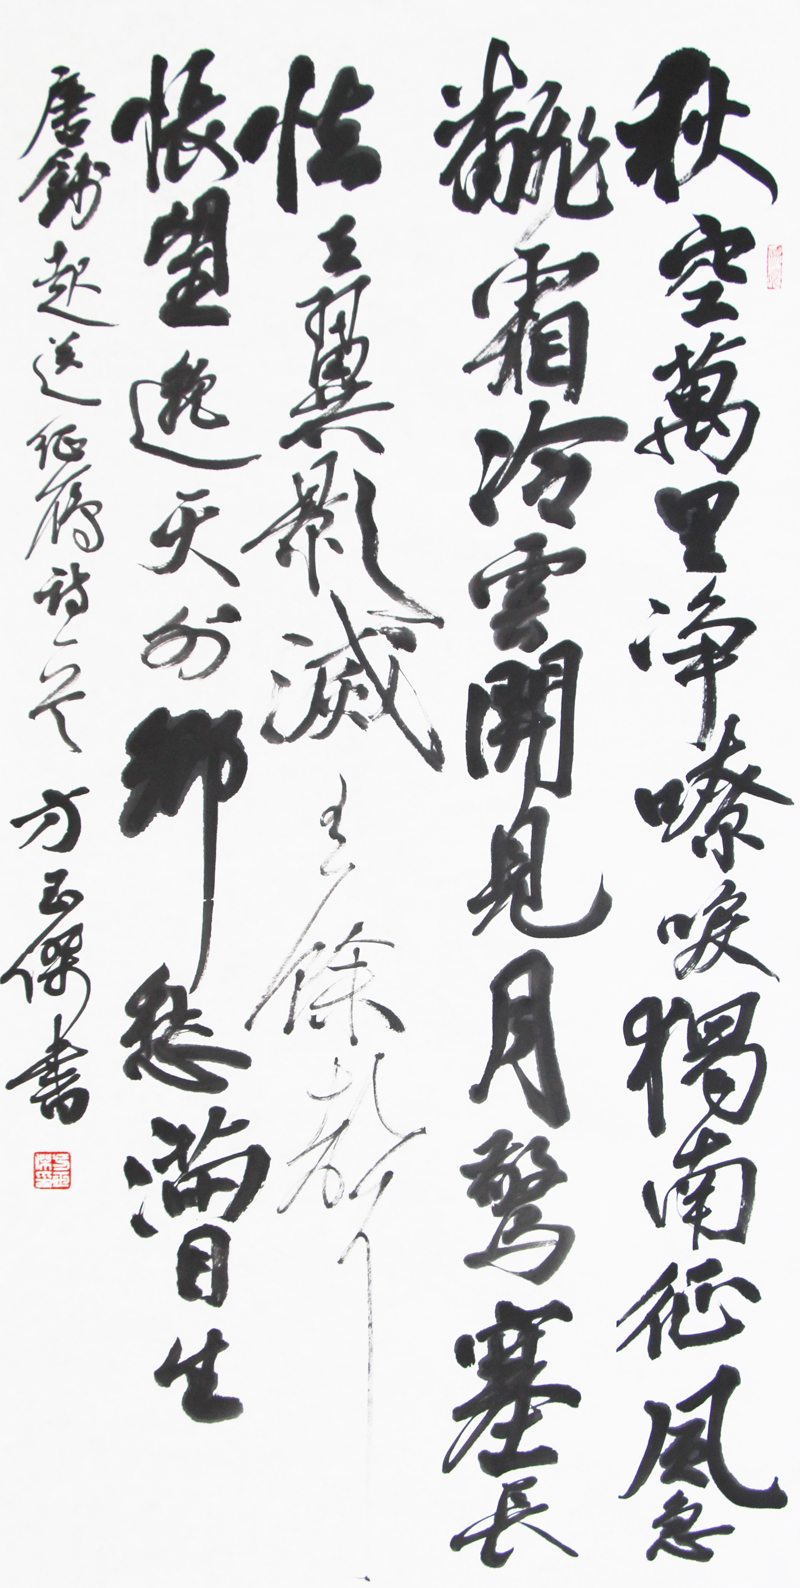 秋空萬里净嘹唳獨南征風急
飜霜冷雲開見月驚塞長
怯去翼影滅有餘聲
悵望遥天外鄉愁滿目生
唐錢起送征鴈詩一首 方玉傑書